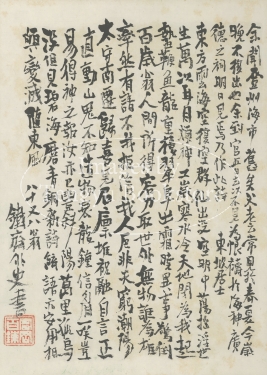 余聞登州海市舊矣父老云常見於春夏今歲
晚不復出也余到官五日去以不見為恨禱於海神廣
德王之祠明日見焉乃作此詩 東坡居士
東方雲海空復空群仙出沒空明中蕩搖浮世
生萬象耳目煩神工歲寒水冷天地閉為我起
蟄鞭魚龍重樓翠阜出霜曉異事驚倒
百歲翁人間所得容力取世外無物誰為雄
率然有請不我拒信我人厄非天窮潮陽
太守南遷歸喜見石廩堆祝融自言正
直動山鬼不知造物哀龍鍾信眉一笑豈
易得神之報汝亦已豐斜陽萬里孤鳥
沒但見碧海磨青銅新詩綺語亦安用相
與變滅隨東風 八十又八翁
鐵齋外史書